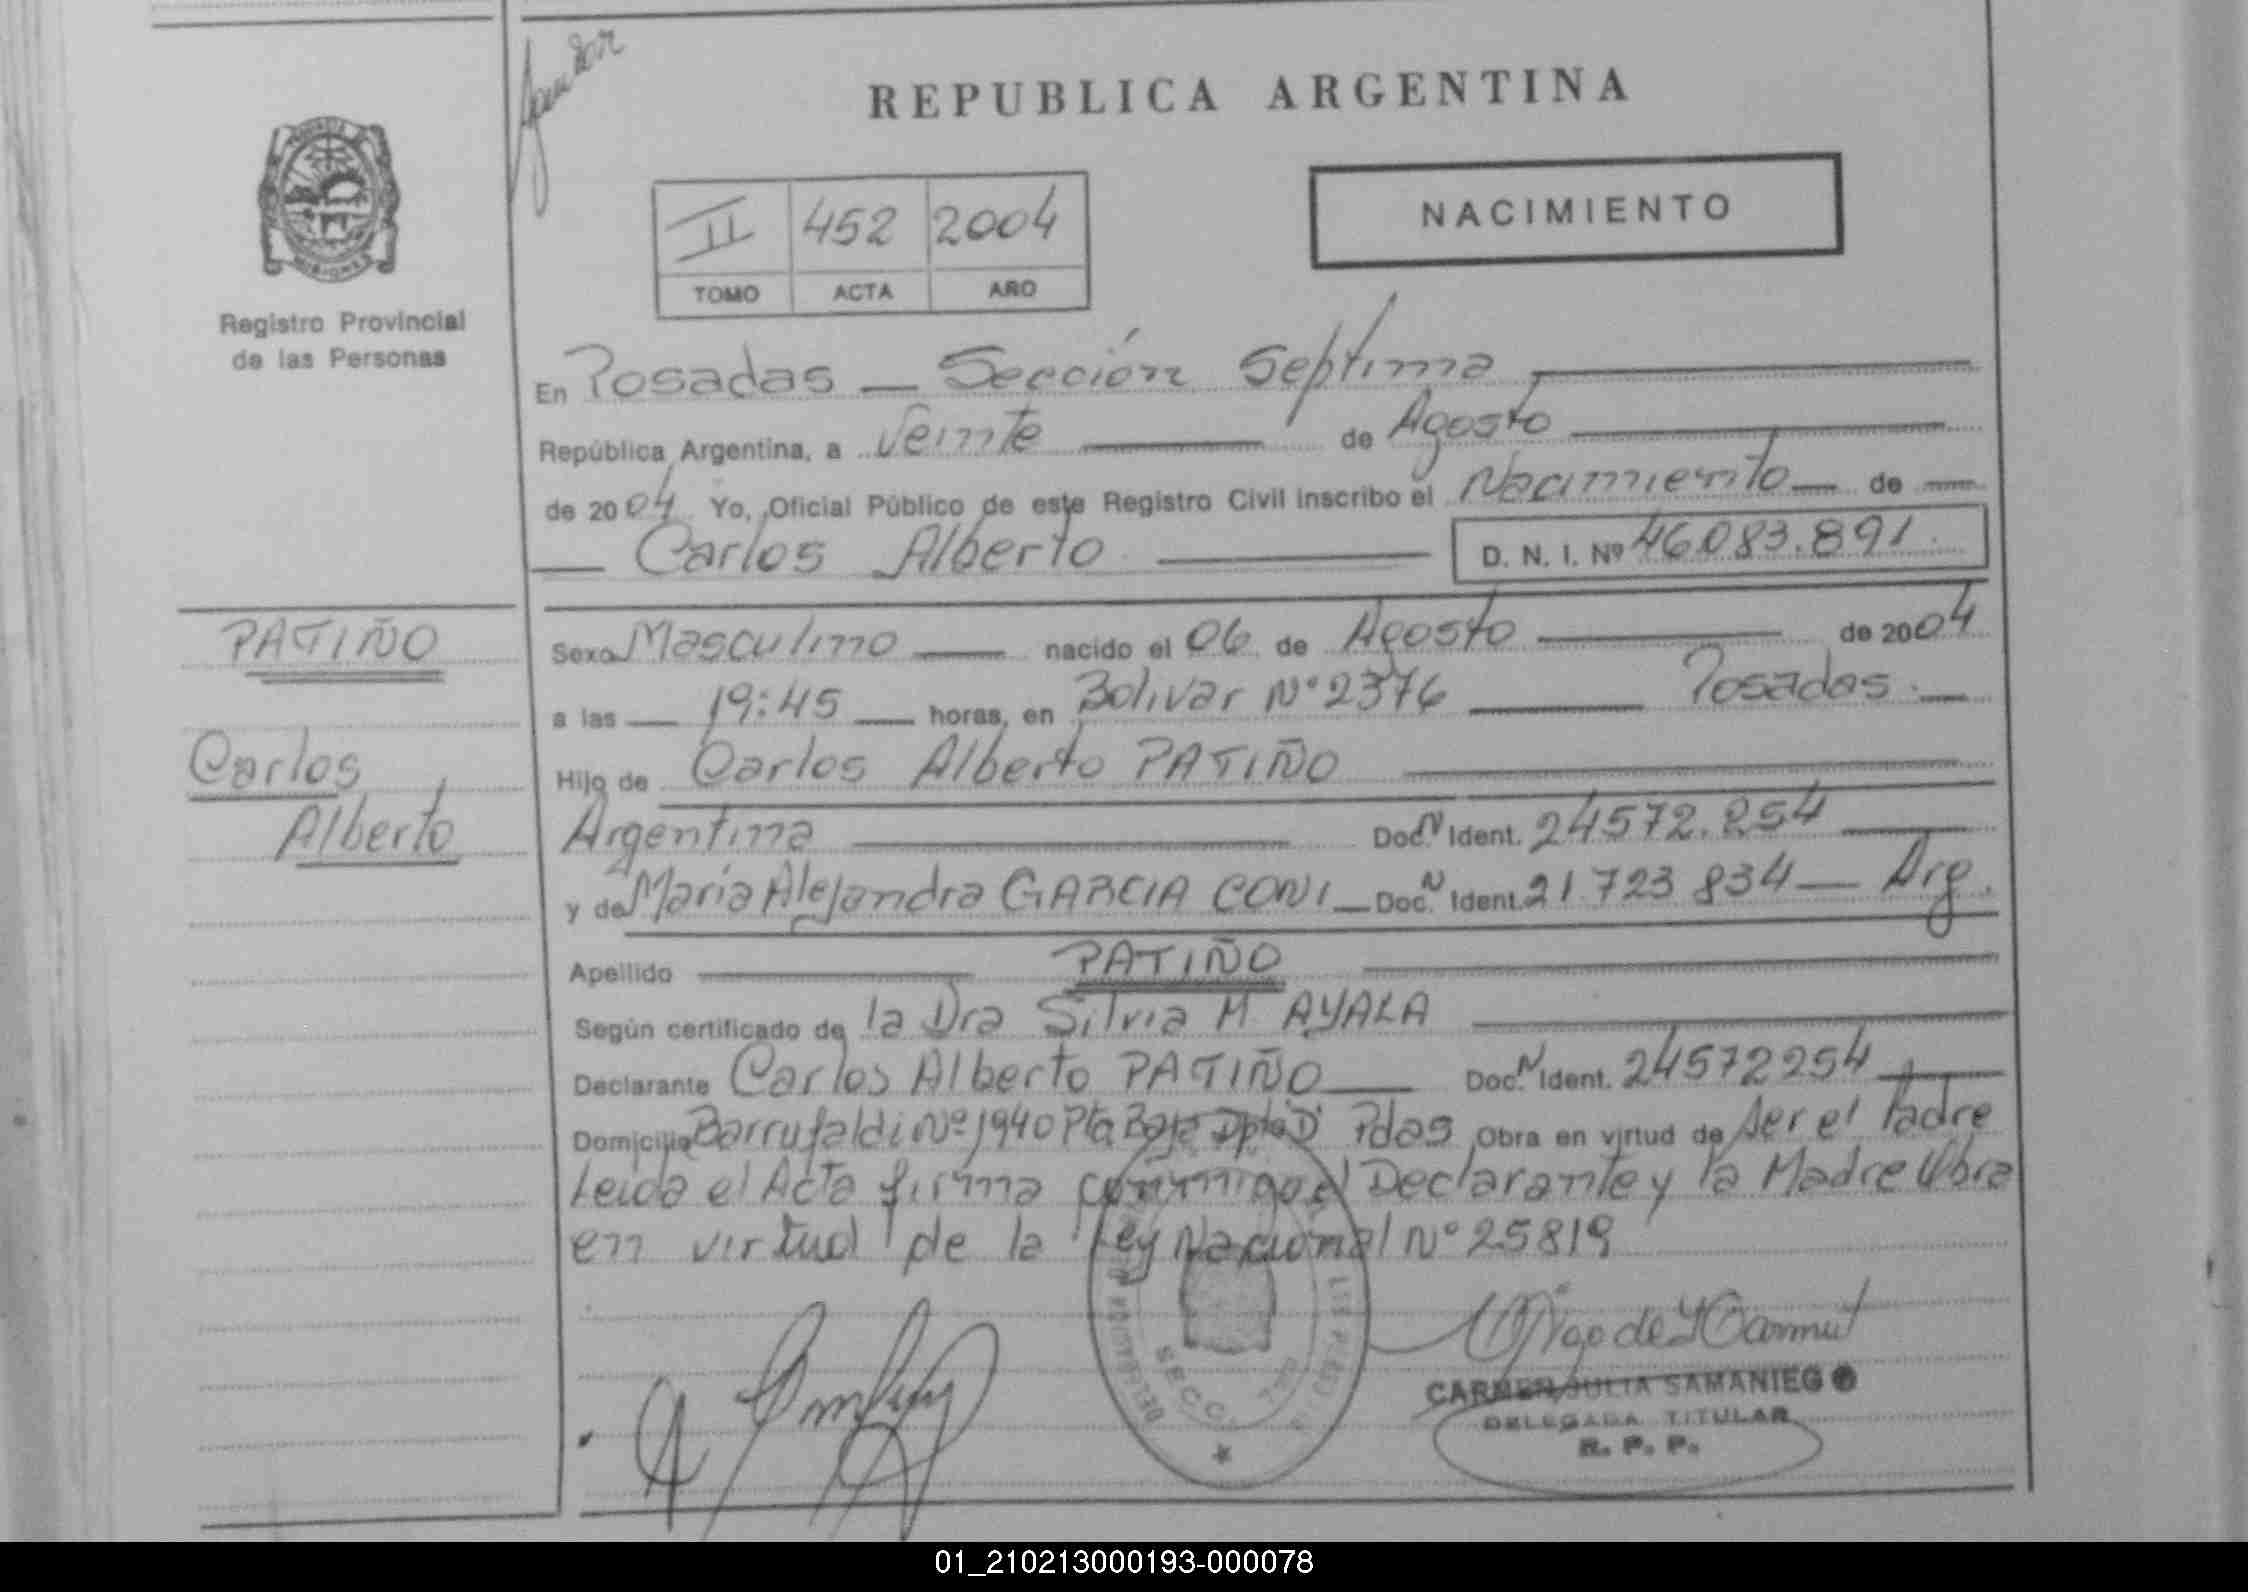 REPUBLICA ARGENTINA
PROVINCIA
MISIONES
Registro Provincial
de las Personas
II 452 2004
TOMO ACTA AÑO
NACIMIENTO
En Posadas — Sección Septima
República Argentina, a Veinte de Agosto
de 2004 Yo, Oficial Público de este Registro Civil inscribo el Nacimiento — de —
Carlos Alberto D. N. I. Nº 46.083.891.
PATIÑO
Carlos
Alberto
Sexo Masculino nacido el 06 de Agosto de 2004
a las — 19:45 — horas, en Bolivar Nº 2376 Posadas. —
Hijo de Carlos Alberto PATIÑO
Argentina Doc. N Ident. 24572.254
y de María Alejandra GARCIA CONI — Doc. N Ident. 21.723.834 — Arg.
Apellido PATIÑO
Según certificado de la Dra Silvia M AYALA
Declarante Carlos Alberto PATIÑO Doc. N Ident. 24572254
Domicilio Barrufaldi Nº 1940 Pta Baja Dpto D Pdas Obra en virtud de ser el Padre
Leida el Acta firma conmigo el Declarante y la Madre Obra
en virtud de la Ley Nacional Nº 25819
SECC.
CARMEN JULIA SAMANIEGO
DELEGADA TITULAR
R. P. P.
01_210213000193-000078